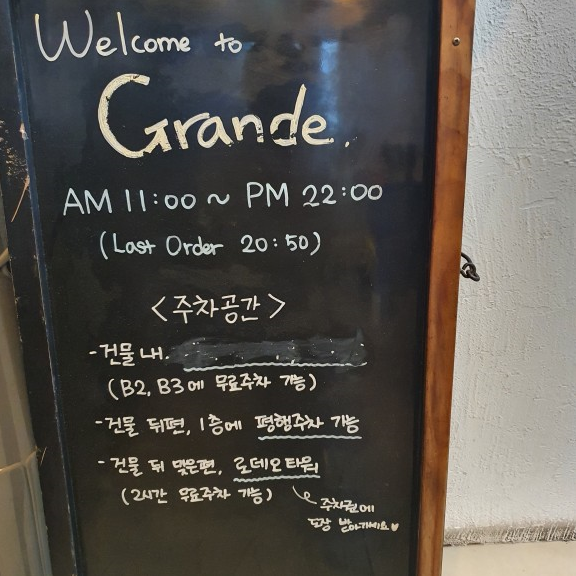 Welcome to
Grande.
AM 11:00 ~ PM 22:00
(Last Order 20:50)
<주차공간>
-건물내.
(B2, B3에 무료주차 가능)
-건물 뒤편, 1층에 평행주차 가능
-건물 뒤 맞은편, 로데오타워
(2시간 무료주차 가능)
주차권에
도장 받아가세요♥